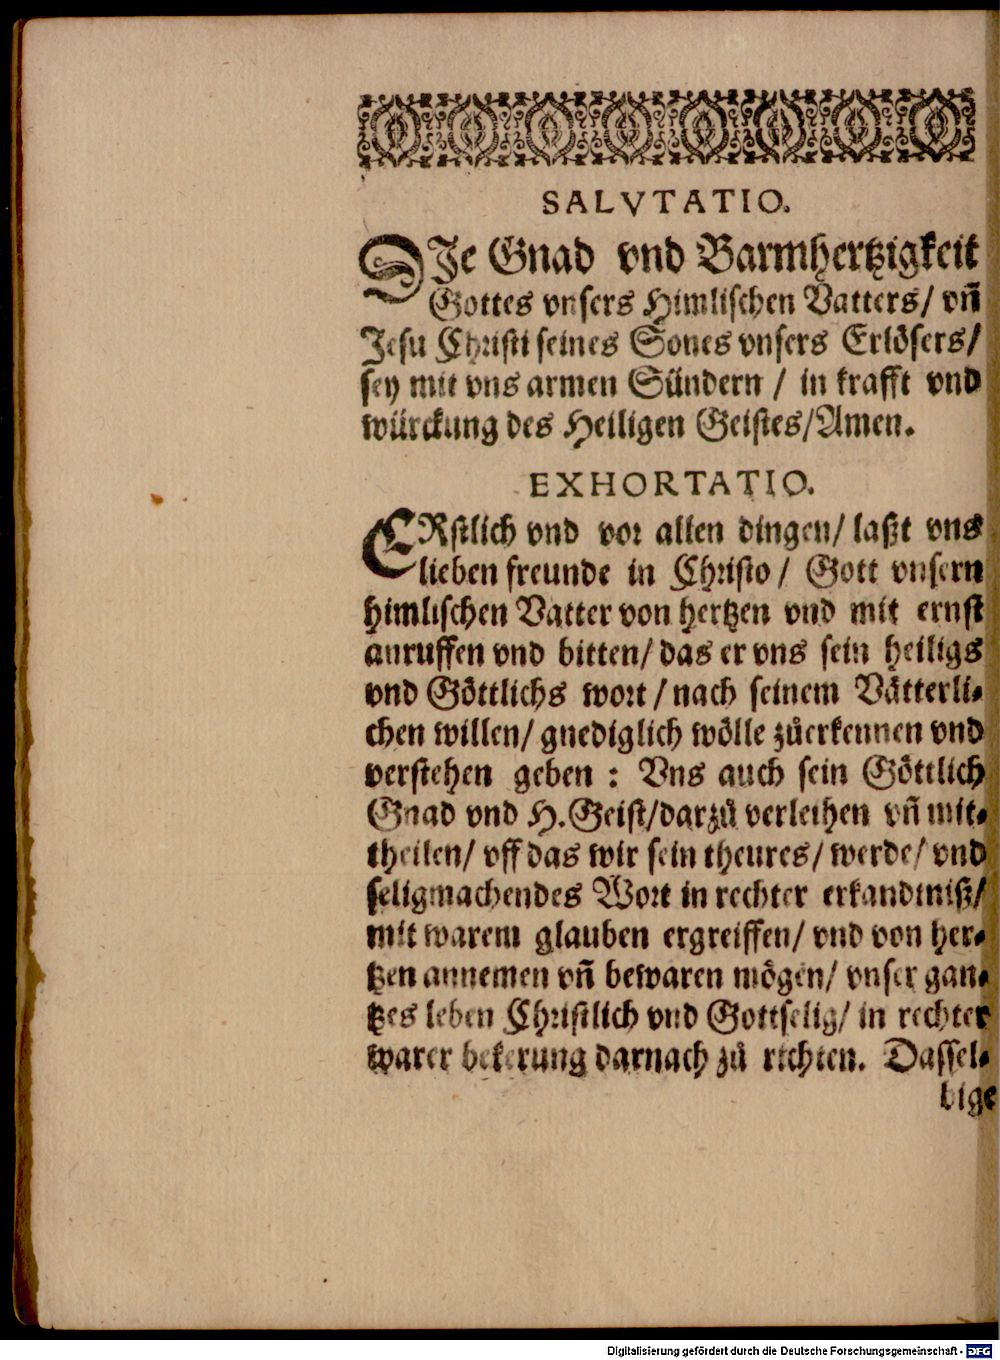 SALVTATIO.
DJe Gnad vnd Barmhertzigkeit
Gottes vnsers Himlischen Vatters/ vñ
Jesu Christi seines Sones vnsers Erlösers/
sey mit vns armen Sündern / in krafft vnd
würckung des Heiligen Geistes/Amen.
EXHORTATIO.
ERstlich vnd vor allen dingen/ laßt vns
lieben freunde in Christo / Gott vnsern
himlischen Vatter von hertzen vnd mit ernst
anruffen vnd bitten/ das er vns sein heiligs
vnd Göttlichs wort / nach seinem Vätterli-
chen willen/ gnediglich wölle zůerkennen vnd
verstehen geben : Vns auch sein Göttlich
Gnad vnd H.Geist/darzů verleihen vñ mit-
theilen/ vff das wir sein theures/ werde/ vnd
seligmachendes Wort in rechter erkandtniß/
mit warem glauben ergreiffen/ vnd von her-
tzen annemen vñ bewaren mögen/ vnser gan-
tzes leben Christlich vnd Gottselig/ in rechter
warer bekerung darnach zů richten. Dassel-
bige
Digitalisierung gefördert durch die Deutsche Forschungsgemeinschaft - DFG